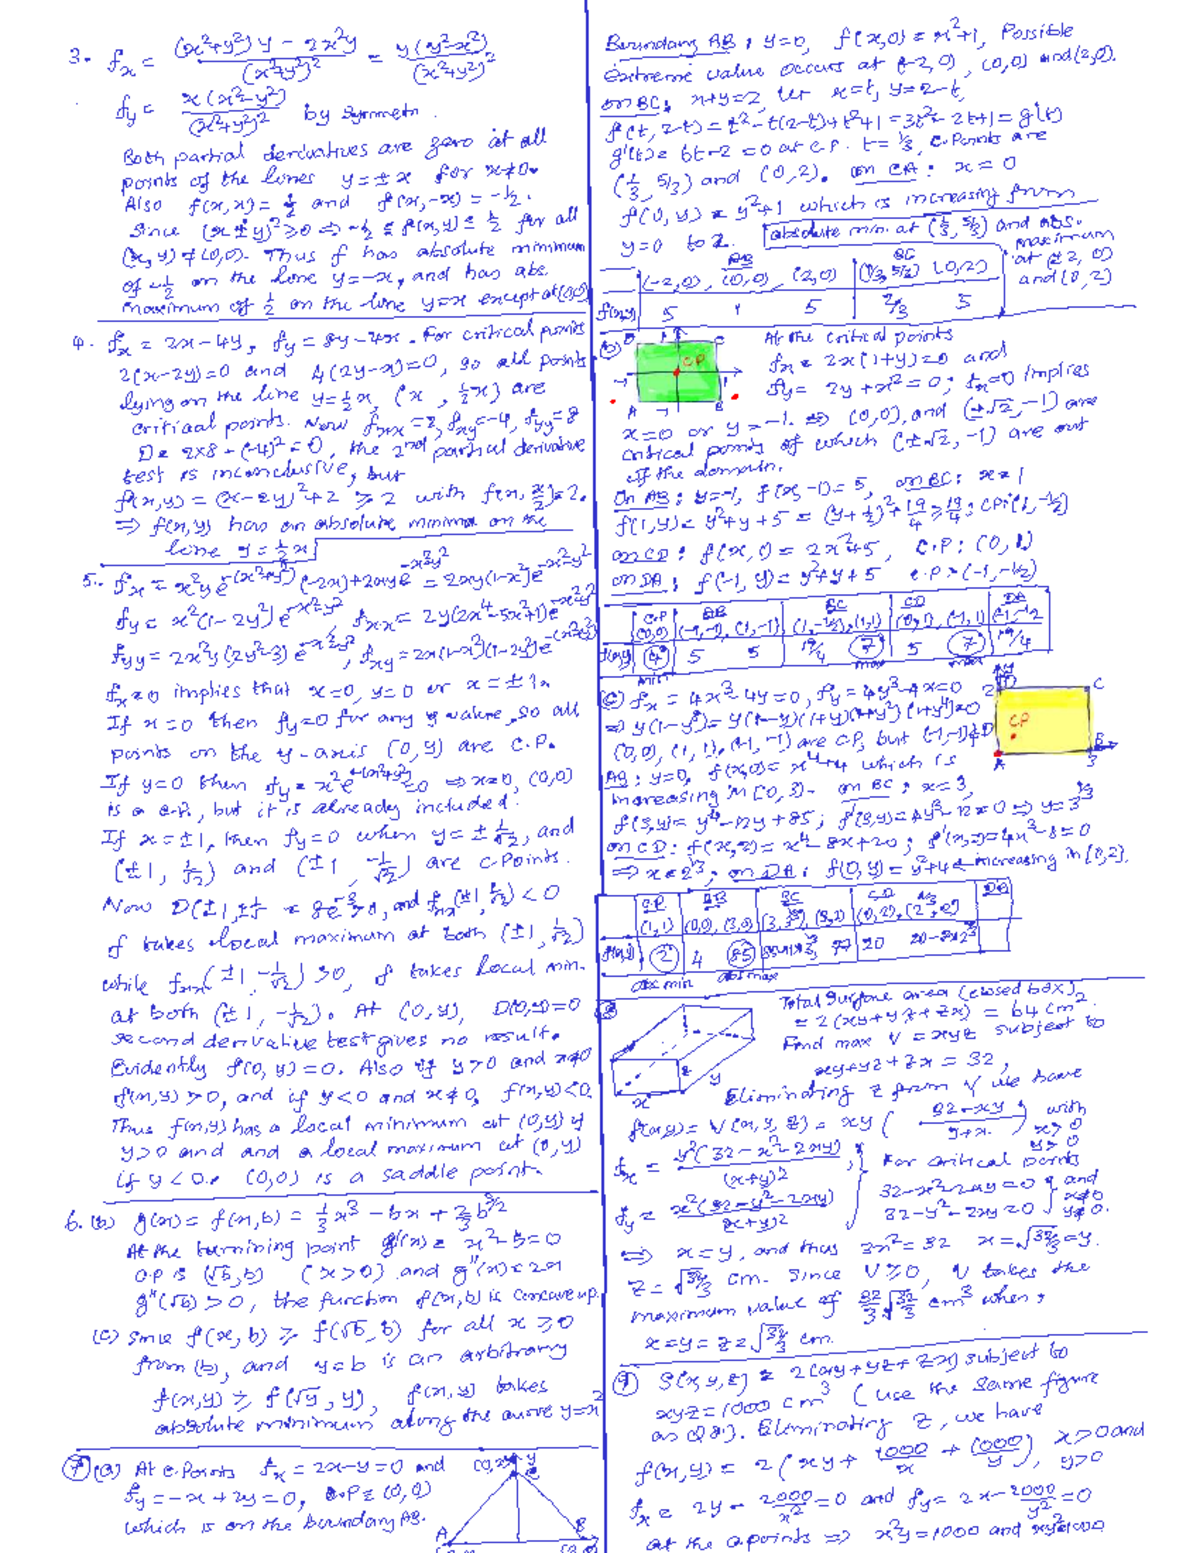 3. fx = (x²+y²)y − 2x²y / (x²+y²)² = y(y²−x²) / (x²+y²)²
fy = x(x²−y²) / (x²+y²)² by symmetry.
Both partial derivatives are zero at all
points of the lines y=±x for x≠0.
Also f(x,x)=½ and f(x,−x)=−½.
Since (x±y)²≥0 ⇒ −½ ≤ f(x,y) ≤ ½ for all
(x,y)≠(0,0). Thus f has absolute minimum
of −½ on the line y=−x, and has abs.
maximum of ½ on the line y=x except at (0,0)
4. fx = 2x−4y, fy = 8y−4x. For critical points
2(x−2y)=0 and 4(2y−x)=0, so all points
lying on the line y=½x, (x, ½x) are
critical points. Now fxx=2, fxy=−4, fyy=8
D = 2×8−(−4)²=0, the 2nd partial derivative
test is inconclusive, but
f(x,y) = (x−2y)²+2 ≥ 2 with f(x, x/2)=2.
⇒ f(x,y) has an absolute minima on the
line y=½x
5. fx = x²y e^−(x²+y²) (−2x)+2xy e^−x²−y² = 2xy(1−x²)e^−x²−y²
fy = x²(1−2y²)e^−x²−y², fxx = 2y(2x⁴−5x²+1)e^−x²−y²
fyy = 2x²y(2y²−3)e^−x²−y², fxy = 2x(1−x²)(1−2y²)e^−(x²+y²)
fx=0 implies that x=0, y=0 or x=±1.
If x=0 then fy=0 for any y value, so all
points on the y-axis (0,y) are C.P.
If y=0 then fy = x²e^−(x²+y²)=0 ⇒ x=0, (0,0)
is a c.p., but it is already included.
If x=±1, then fy=0 when y=±1/√2, and
(±1, 1/√2) and (±1, −1/√2) are C.Points.
Now D(±1,±1/√2) = 8e⁻³>0, and fxx(±1, 1/√2)<0
f takes local maximum at both (±1, 1/√2)
while fxx(±1, −1/√2)>0, f takes local min.
at both (±1, −1/√2). At (0,y), D(0,y)=0
second derivative test gives no result.
Evidently f(0,y)=0. Also if y>0 and x≠0
f(x,y)>0, and if y<0 and x≠0, f(x,y)<0.
Thus f(x,y) has a local minimum at (0,y) if
y>0 and and a local maximum at (0,y)
if y<0. (0,0) is a saddle point.
6. (b) g(x) = f(x,b) = ⅓x³ − bx + ⅔b^3/2
At the turnining point g'(x) = x²−b=0
c.p is (√b,b) (x>0) and g''(x)=2x
g''(√b)>0, the function f(x,b) is concave up.
(c) Since f(x,b) ≥ f(√b,b) for all x≥0
from (b), and y=b is an arbitrary
f(x,y) ≥ f(√y,y), f(x,y) takes
absolute minimum along the curve y=x²
7 (a) At C.Points fx = 2x−y=0 and
fy=−x+2y=0, C.P=(0,0)
which is on the boundary AB.
A B
Boundary AB: y=0, f(x,0)=x²+1, Possible
extreme value occurs at (−2,0), (0,0) and (2,0).
on BC: x+y=2, let x=t, y=2−t,
f(t,2−t)=t²−t(2−t)+t²+1=3t²−2t+1=g(t)
g'(t)=6t−2=0 at c.p. t=⅓, C.Points are
(⅓, 5/3) and (0,2). on CA: x=0
f(0,y)=y²+1 which is increasing from
y=0 to 2. absolute min. at (⅓, 5/3) and abs.
maximum
at (±2,0)
and (0,2)
AB BC
(−2,0), (0,0), (2,0) (1/3, 5/2) (0,2)
f(x,y) 5 1 5 2/3 5
(b) D C CP A B −1 1 −1
At the critical points
fx = 2x(1+y)=0 and
fy = 2y+x²=0; fx=0 implies
x=0 or y=−1. ⇒ (0,0), and (±√2,−1) are
critical points of which (±√2,−1) are out
of the domain.
On AB: y=−1, f(x,−1)=5, on BC: x=1
f(1,y)=y²+y+5=(y+½)²+19/4≥19/4; CP:(1,−½)
on CD: f(x,1)=2x²+5, C.P: (0,1)
on DA: f(−1,y)=y²+y+5 c.p=(−1,−½)
C.P AB BC CD DA
(0,0) (−1,−1), (1,−1) (1,−½), (1,1) (0,1), (−1,1) (−1,−½
f(x,y) 4 5 5 19/4 7 5 7 19/4
min max max
(c) fx = 4x³−4y=0, fy=4y³−4x=0
⇒ y(1−y⁸)=y(1−y)(1+y)(1+y²)(1+y⁴)=0
(0,0), (1,1), (−1,−1) are CP, but (−1,−1)∉D
2 C CP A B 3
AB: y=0, f(x,0)=x⁴+4 which is
increasing in [0,3]. on BC: x=3,
f(3,y)=y⁴−12y+85; f'(3,y)=4y³−12=0 ⇒ y=3^1/3
on CD: f(x,2)=x⁴−8x+20; f'(x,2)=4x³−8=0
⇒ x=2^1/3; on DA: f(0,y)=y⁴+4 increasing in [0,2].
C.P AB BC CD DA
(1,1) (0,0), (3,0) (3,3^1/3), (3,2) (0,2), (2^1/3, 2)
f(x,y) 2 4 85 77 20
abs min abs max
8 x y z
Total surface area (closed box)
= 2(xy+yz+zx) = 64 cm²
Find max V = xyz subject to
xy+yz+zx = 32,
Eliminating z from V we have
f(x,y)=V(x,y,z) = xy ( 32−xy / y+x ) with x>0 y>0
fx = y²(32−x²−2xy) / (x+y)²,
fy = x²(32−y²−2xy) / (x+y)²
For critical points
32−x²−2xy=0 and
32−y²−2xy=0 x≠0 y≠0.
⇒ x=y, and thus 3x²=32 x=√32/3=y.
z=√32/3 cm. Since V≥0, V takes the
maximum value of 32/3 √32/3 cm³ when,
x=y=z=√32/3 cm.
9 S(x,y,z) = 2(xy+yz+zx) subject to
xyz=1000 cm³ (use the same figure
as Q8). Eliminating z, we have
f(x,y) = 2(xy+ 1000/x + 1000/y), x>0 and y>0
fx = 2y − 2000/x² =0 and fy = 2x − 2000/y² =0
at the c.points ⇒ x²y=1000 and xy²=1000